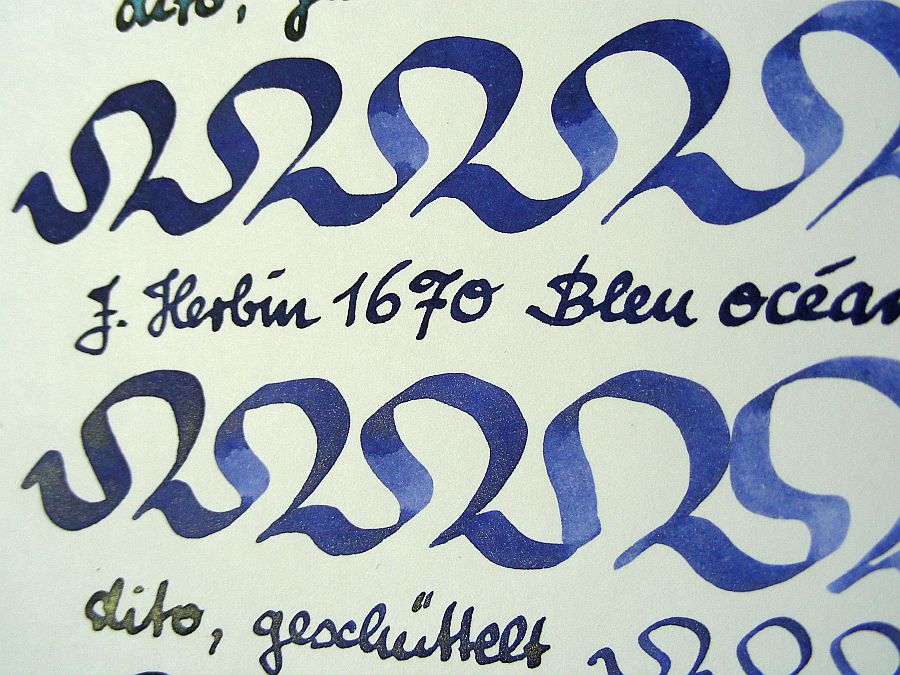 dito,
J. Herbin 1670 Bleu océan
dito, geschüttelt